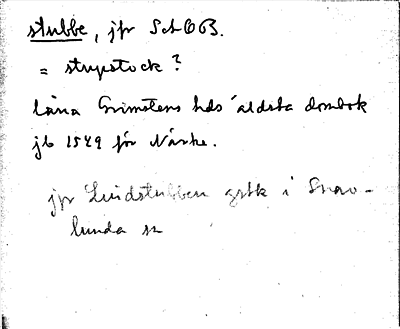 stubbe, jfr SchOB.
= stupstock?
Måns Grimstens hds äldsta dombok
jb 1549 för Närke.
jfr Lindstubben gstk i Snav-
lunda sn